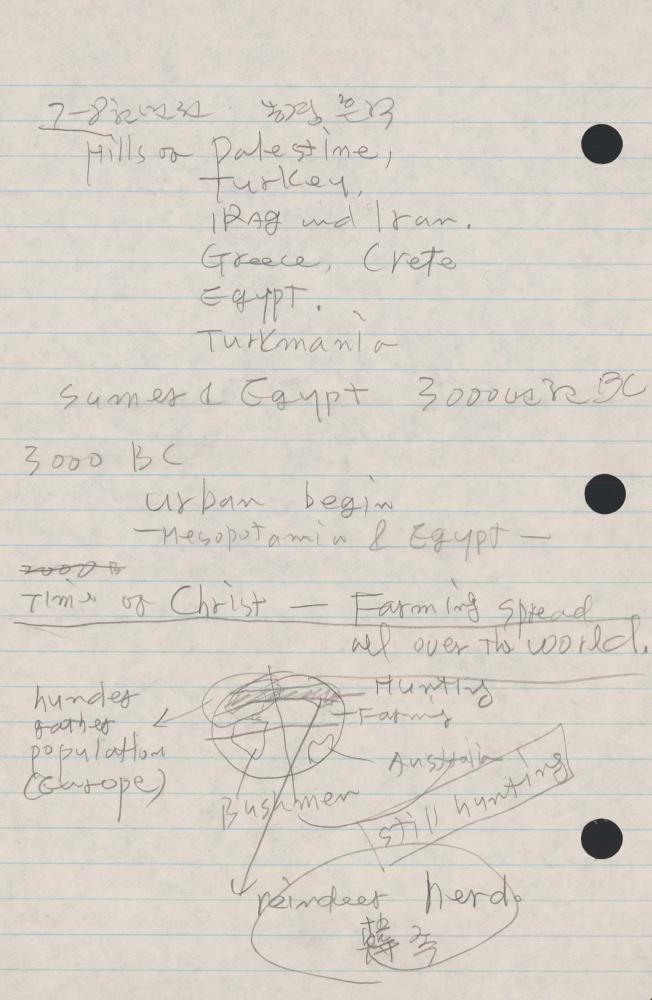 7-8000년전 농경
Hills of Palestine,
Turkey,
IRAq and Iran.
Greece, Crete
Egypt.
Turkmania
Sumer & Egypt 3000 BC
3000 BC
urban begin
—Mesopotamia & Egypt—
2000 B
Time of Christ — Farming spread
all over the world.
Hunting
Farming
hunder
gather
population
(Europe)
Australia
Bushmen
still hunting
reindeer herd.
韓국